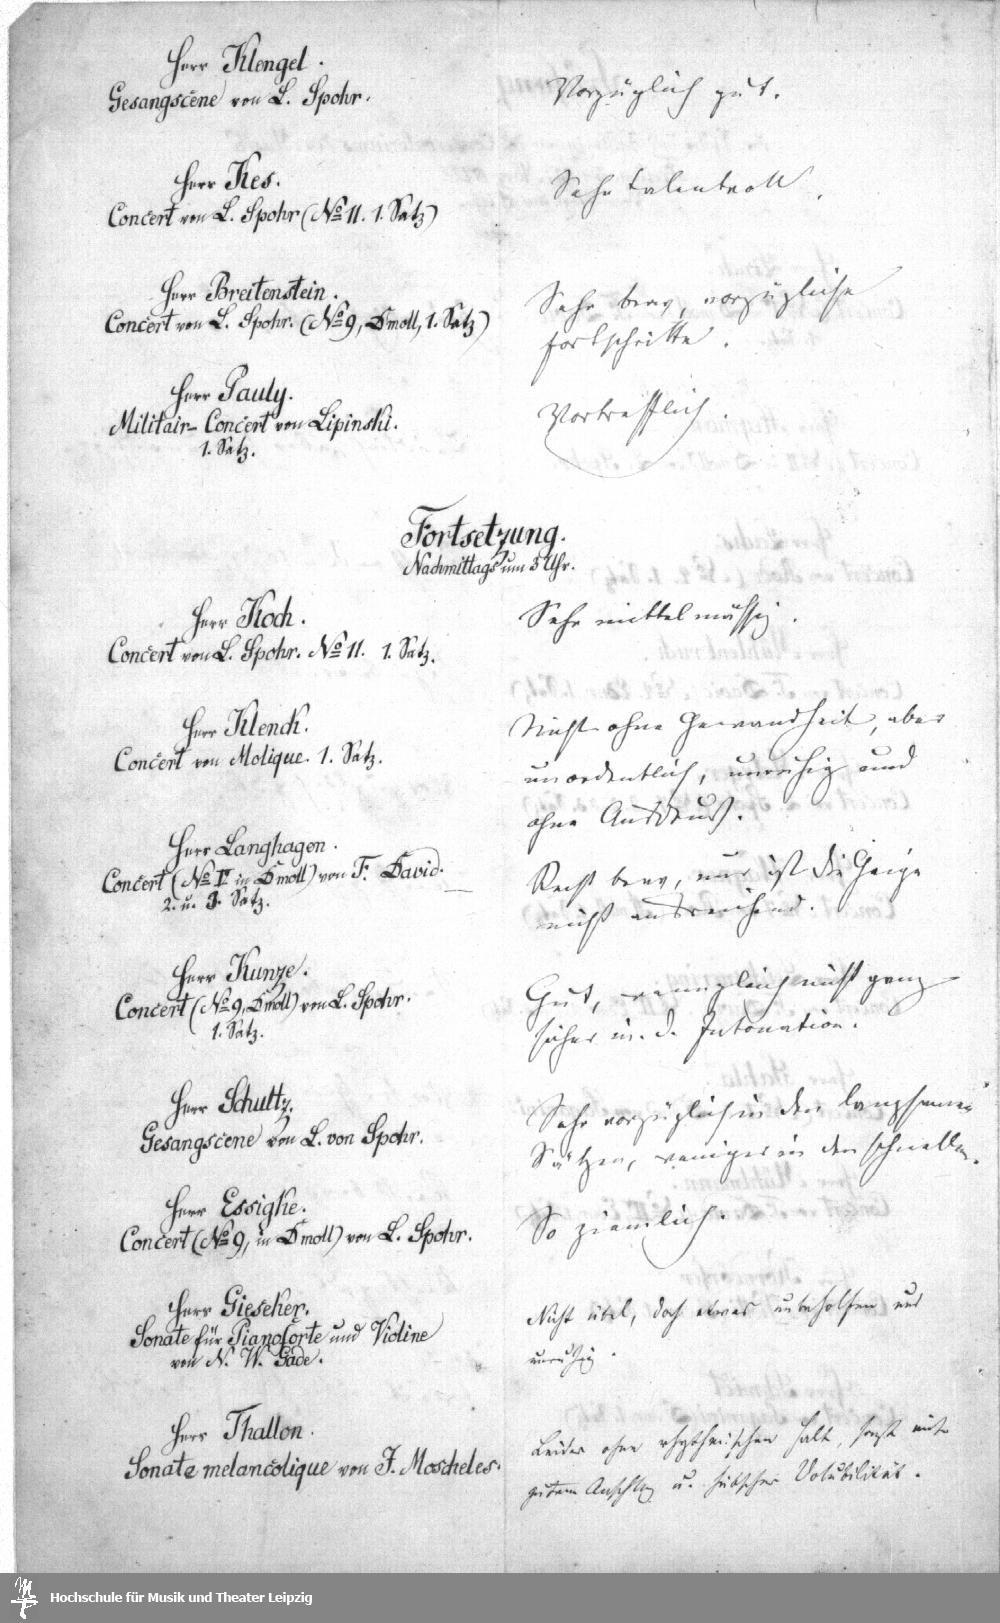 Herr Klengel.
Gesangscene von L. Spohr.
Vorzüglich gut.
Herr Kes.
Concert von L. Spohr (No 11. 1. Satz)
Sehr talentvoll.
Herr Breitenstein.
Concert von L. Spohr. (No 9, Dmoll, 1. Satz)
Sehr brav, vorzügliche
Fortschritte.
Herr Pauly.
Militair-Concert von Lipinski.
1. Satz.
Vortrefflich.
Fortsetzung.
Nachmittags um 3 Uhr.
Herr Koch.
Concert von L. Spohr. No 11. 1. Satz.
Sehr mittelmässig.
Herr Klenck.
Concert von Molique. 1. Satz.
Nicht ohne Gewandheit, aber
unordentlich, unruhig und
ohne Ausdruck.
Herr Langhagen.
Concert (No IV in Dmoll) von F. David.
2. u. 3. Satz.
Recht brav, nur ist die Geige
nicht ausreichend.
Herr Kunze.
Concert (No 9, Dmoll) von L. Spohr.
1. Satz.
Gut, wenngleich nicht ganz
sicher in d. Intonation.
Herr Schultz.
Gesangscene von L. von Spohr.
Sehr vorzüglich in den langsamen
Sätzen, weniger in den schnellen.
Herr Essigke.
Concert (No 9, in Dmoll) von L. Spohr.
So ziemlich.
Herr Gieseker.
Sonate für Pianoforte und Violine
von N. W. Gade.
Nicht übel, doch etwas unbeholfen und
unruhig.
Herr Thallon.
Sonate melancolique von J. Moscheles.
Leider ohne rhythmischen Halt, sonst mit
gutem Anschlag u. hübscher Volubilität.
Hochschule für Musik und Theater Leipzig